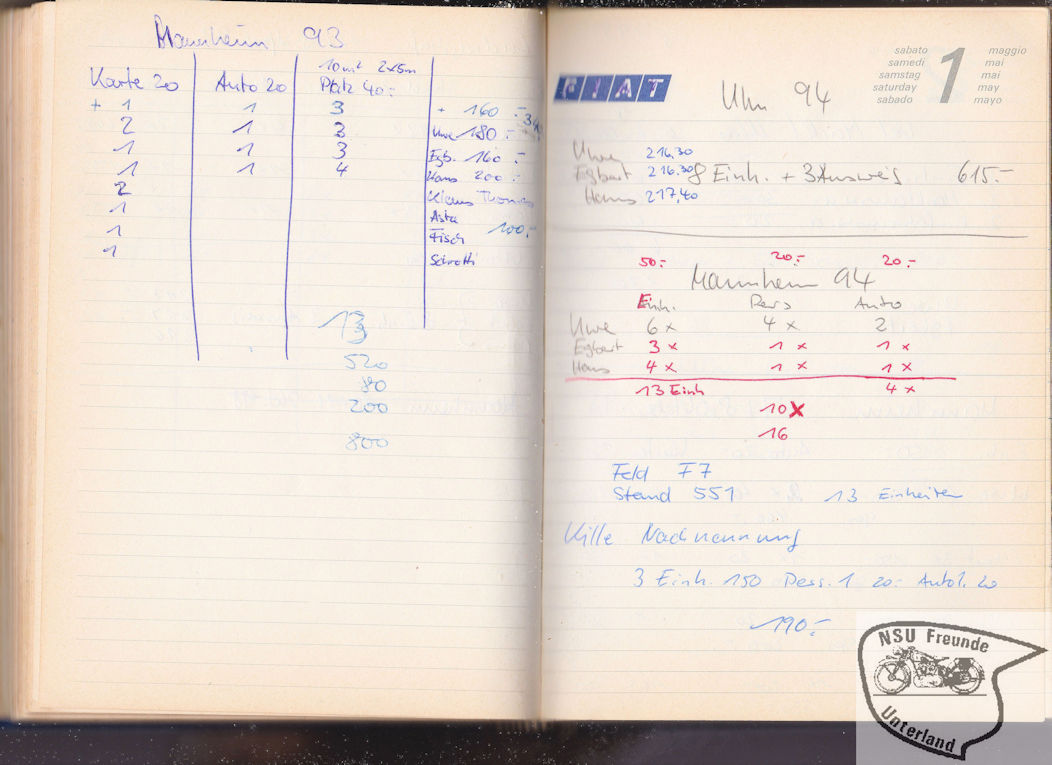 Mannheim 93
10m² 2x5m
Karte 20 Auto 20 Platz 40.-
+ 1 1 3 + 160.-
2 1 3 Uwe 180.-
1 1 3 Egb. 160.-
1 1 4 Hans 200.-
2 Klaus Thomas
1 Asta
1 Fisch 100.-
1 Schrotti
13
520
80
200
800
FIAT
sabato maggio
samedi mai
samstag mai
saturday may
sabado mayo
1
Ulm 94
Uwe 216,30
Egbert 216.30 8 Einh. + 3 Ausweis 615.-
Hans 217,40
50.- 20.- 20.-
Mannheim 94
Einh. Pers Auto
Uwe 6x 4x 2
Egbert 3x 1x 1x
Hans 4x 1x 1x
13 Einh 4x
10x
16
Feld F7
Stand 551 13 Einheiten
Kille Nachnennung
3 Einh. 150 Pers. 1 20.- Auto 1. 20
190.-
NSU Freunde
Unterland